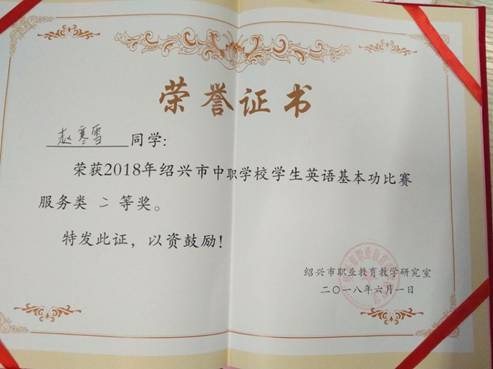 荣誉证书
赵寒雪同学:
荣获2018年绍兴市中职学校学生英语基本功比赛
服务类 二 等奖。
特发此证，以资鼓励!
绍兴市职业教育教学研究室
二〇一八年六月一日